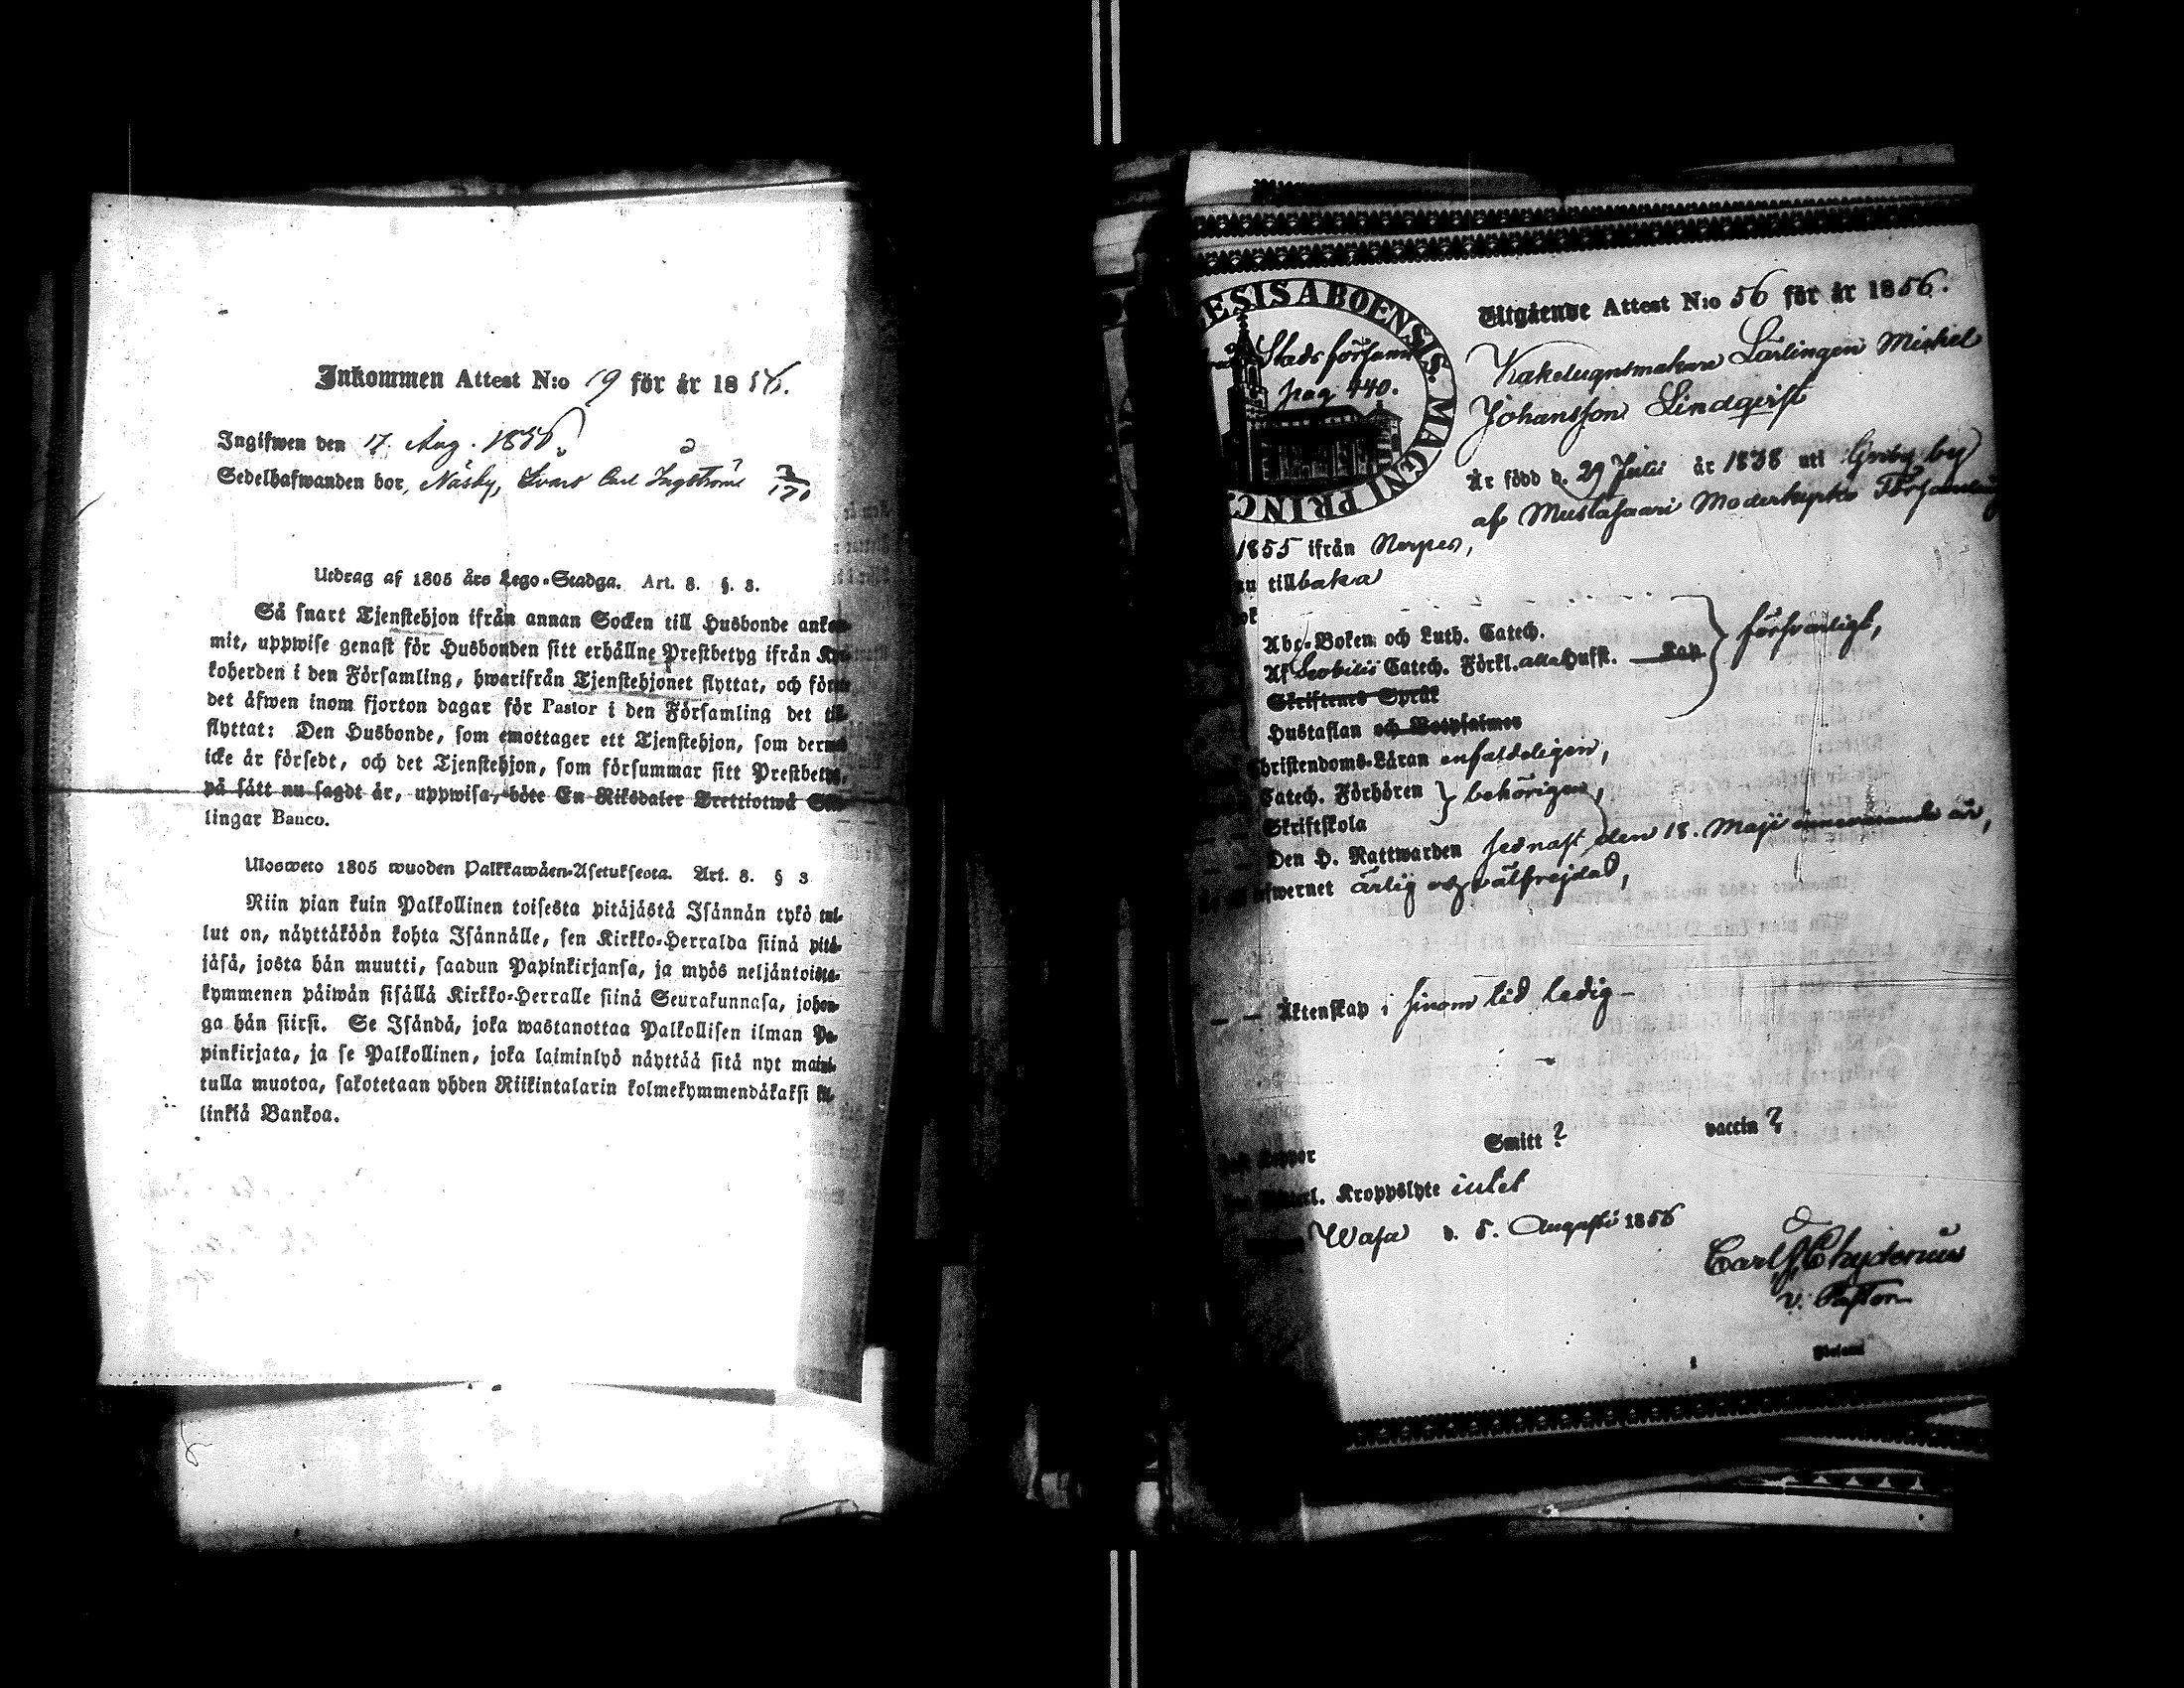 Inkommen Attest N:o 19 för år 1856.
Ingifwen den 17. Aug. 1856.
Sedelhafwanden bor, Näsby,
Utdrag af 1805 års Lego-Stadga. Art. 8. §. 3.
Så snart Tjenstehjon ifrån annan Socken till Husbonde
mit, uppwise genast för Husbonden sitt erhållne Prestbetyg ifrån
koherden i den Församling, hwarifrån Tjenstehjonet flyttat, och
det äfwen inom fjorton dagar för Pastor i den Församling det
flyttat: Den Husbonde, som emottager ett Tjenstehjon, som
icke är försedt, och det Tjenstehjon, som försummar sitt
på sätt nu sagdt är, uppwisa, böte En Riksdaler Trettiotwå
lingar Banco.
Ulosweto 1805 wuoden Palkkawäen-Asetuksesta. Art. 8. § 3
Niin pian kuin Palkollinen toisesta pitäjästä Isännän tykö tul-
lut on, näyttäköön kohta Isännälle, sen Kirkko-Herralda siinä pitä-
jäsä, josta hän muutti, saadun Papinkirjansa, ja myös neljäntoista-
kymmenen päiwän sisällä Kirkko-Herralle siinä Seurakunnasa, johon-
ga hän siirsi. Se Isändä, joka wastanottaa Palkollisen ilman Pa-
pinkirjata, ja se Palkollinen, joka laiminlyö näyttää sitä nyt maini-
tulla muotoa, sakotetaan yhden Riikintalarin kolmekymmendäkaksi kil-
linkiä Bankoa.
ESIS ABOENSIS. MAGNI PRINC
Stads församl
pag 440.
Utgående Attest N:o 56 för år 1856.
Kakelugnsmakare Lärlingen Mickel
Johansson Lindqvist
Är född d. 29 Julii år 1838 uti Gröby by
af Mustasaari Moderkyrko Församling
1855 ifrån Nerpes,
tillbaka
Abc-Boken och Luth. Catech.
Af Catech. Förkl. alla Hufst. Kap försvarligt,
Skriftenes Språk
Hustaflan och Botpsalmer
Christendoms-Läran enfaldeligen,
Catech. Förhören } behörigen,
Skriftskola
Den H. Nattwarden sednast den 18. Maji innevarande år,
ärlig och välfrejdad,
Äktenskap i sinom tid ledig
Koppor Smitt ? vaccin ?
Kroppslyte intet
Wasa d. 8. Augusti 1856
Carl Chydenius
v. Pastor